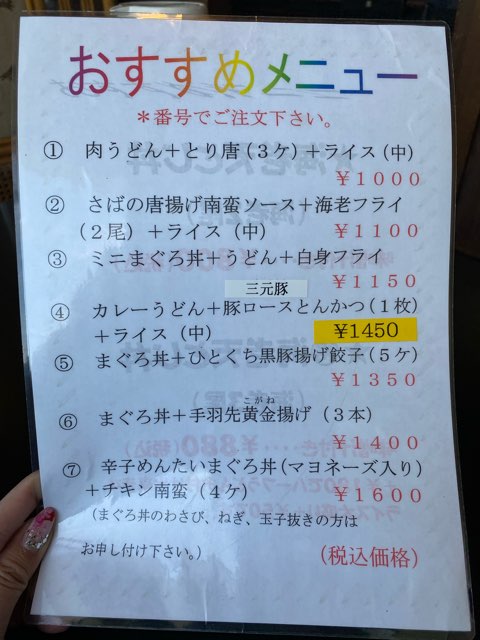 おすすめメニュー
＊番号でご注文下さい。
① 肉うどん＋とり唐（3ケ）＋ライス（中）
￥1000
② さばの唐揚げ南蛮ソース＋海老フライ
（2尾）＋ライス（中） ￥1100
③ ミニまぐろ丼＋うどん＋白身フライ
￥1150
三元豚
④ カレーうどん＋豚ロースとんかつ（1枚）
＋ライス（中） ¥1450
⑤ まぐろ丼＋ひとくち黒豚揚げ餃子（5ケ）
￥1350
こがね
⑥ まぐろ丼＋手羽先黄金揚げ（3本）
￥1400
⑦ 辛子めんたいまぐろ丼（マヨネーズ入り）
＋チキン南蛮（4ケ） ￥1600
（まぐろ丼のわさび、ねぎ、玉子抜きの方は
お申し付け下さい。） （税込価格）